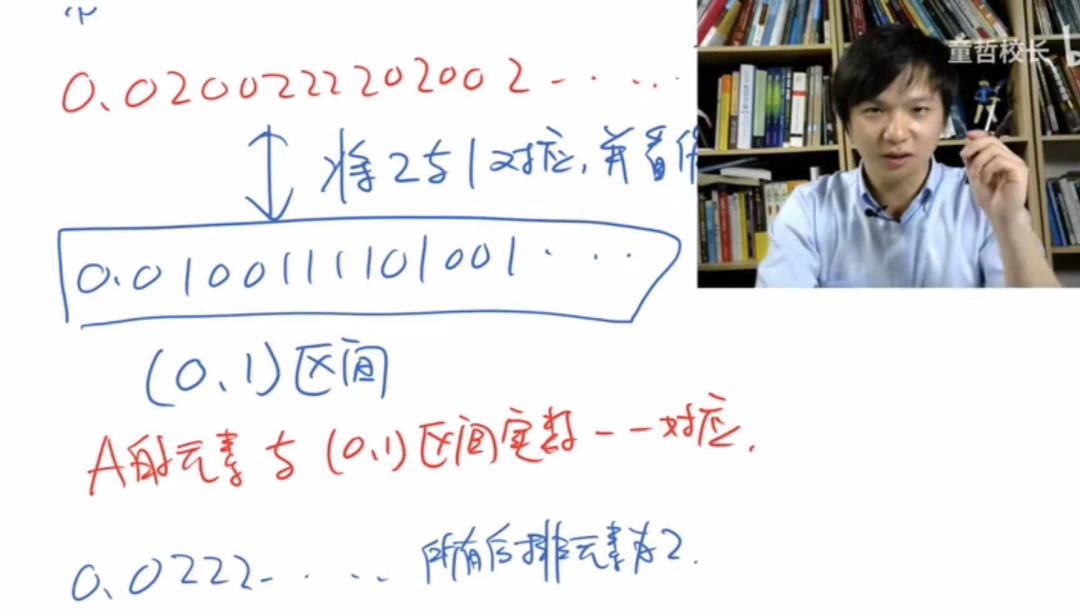 0.0200222202002-.....
童哲校长
将2与1对应,并看
0.0100111101001....
(0,1)区间
A的元素与(0,1)区间实数一一对应.
0.0222-.... 所有后排元素为2.